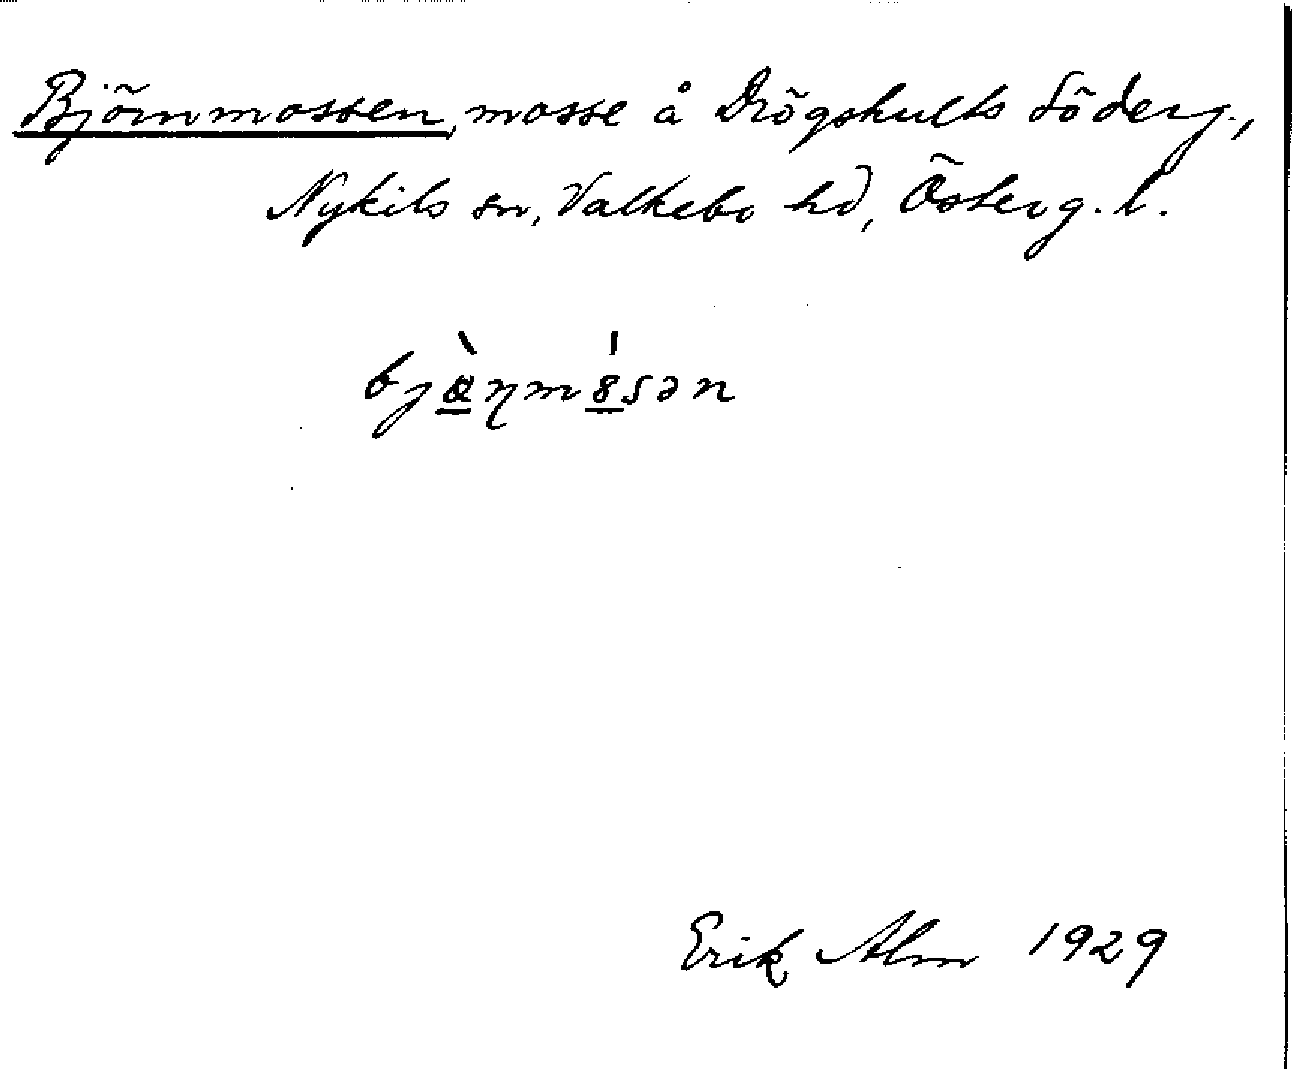 Björnmossen, mosse å Drögshults Söderg.,
Nykils sn, Valkebo hd, Österg. l.
Erik Alm 1929